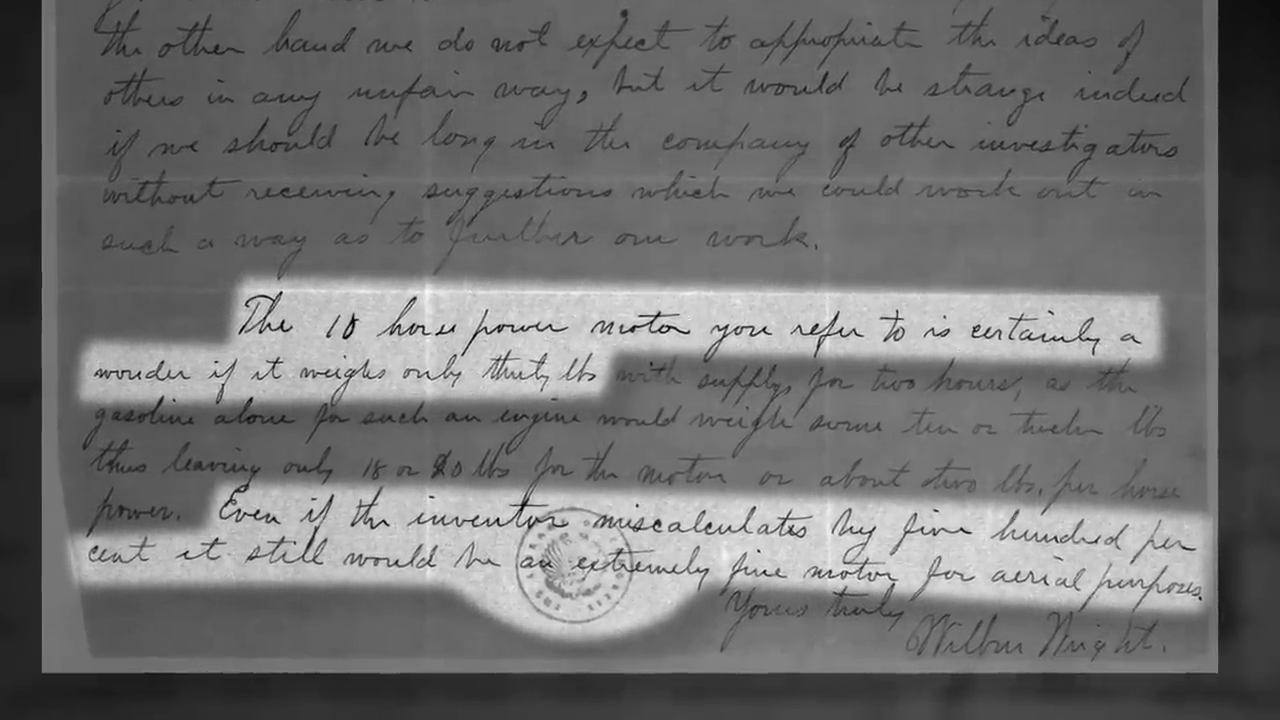 the other hand we do not expect to appropriate the ideas of
others in any unfair way, but it would be strange indeed
if we should be long in the company of other investigators
without receiving suggestions which we could work out in
such a way as to further our work.
The 18 horse power motor you refer to is certainly a
wonder if it weighs only thirty lbs with supply for two hours, as the
gasoline alone for such an engine would weigh some ten or twelve lbs
thus leaving only 18 or 20 lbs for the motor or about two lbs. per horse
power. Even if the inventor miscalculates by five hundred per
cent it still would be an extremely fine motor for aerial purposes.
Yours truly
Wilbur Wright.